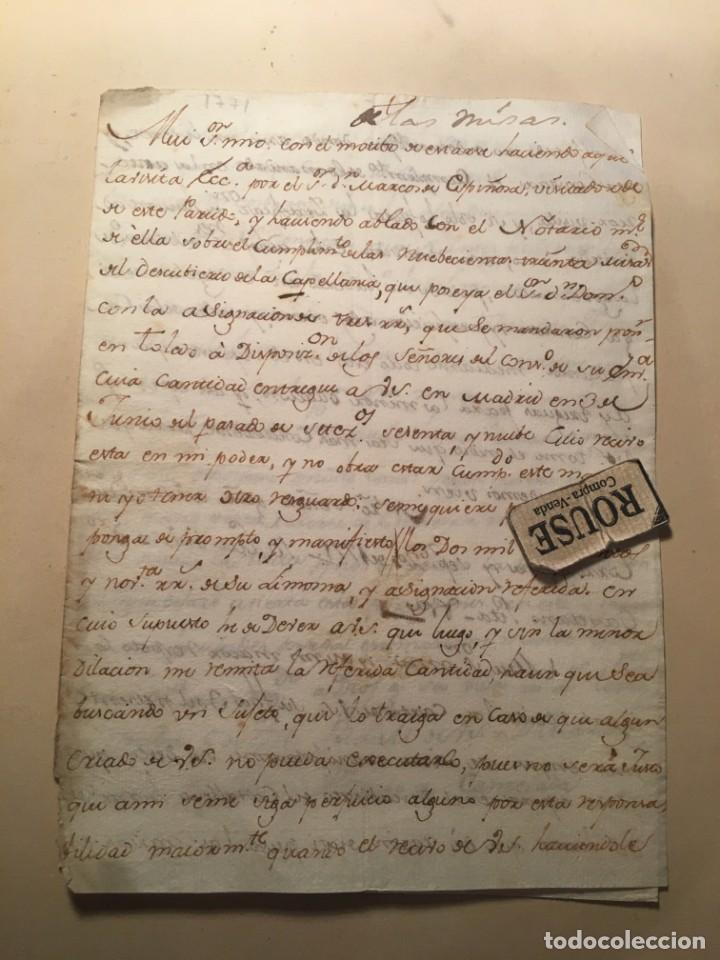 de las misas.
Mui Sor. mio. con el motibo de estarse haciendo aqui
la visita Ecc.a por el Sr. dn. Marcos de Espiñosa, visitador
de este Partdo., y haviendo ablado con el Notario
de ella sobre el Cumplimto. de las Nuebecientas treinta misas
del Descubierto de la Capellania, que poseya el Sr. dn. Domo.
con la assignacion de tres rs., que se mandaron poner
en toledo à Disposizon. de los Señores del Conso. de su Ema.
cuia Cantidad entregue a Vs. en Madrid en 3 de
Junio del pasado de setezos. sesenta, y nuebe Cuio recivo
esta en mi poder, y no obstar estar Cumpdo. este
ni yo tener otro resguardo. se me quiere
ponga de prompto, y manifiesto los Dos mil
y nobta. rs. de su Limosna, y assignacion referida. en
cuio supuesto he de Dever a Vs. que luego, y sin la minor
Dilacion me remita la referida Cantidad haun que sea
buscando un sujeto, que lo traiga en Caso de que algun
Criado de Vs. no pueda executarlo, pues no serà justo
que a mi seme siga perjuicio alguno por esta responsa
bilidad maiormte. quando el recivo de Vs. haciendole
ROUSE
Compra-Venda
todocoleccion
todocoleccion.net